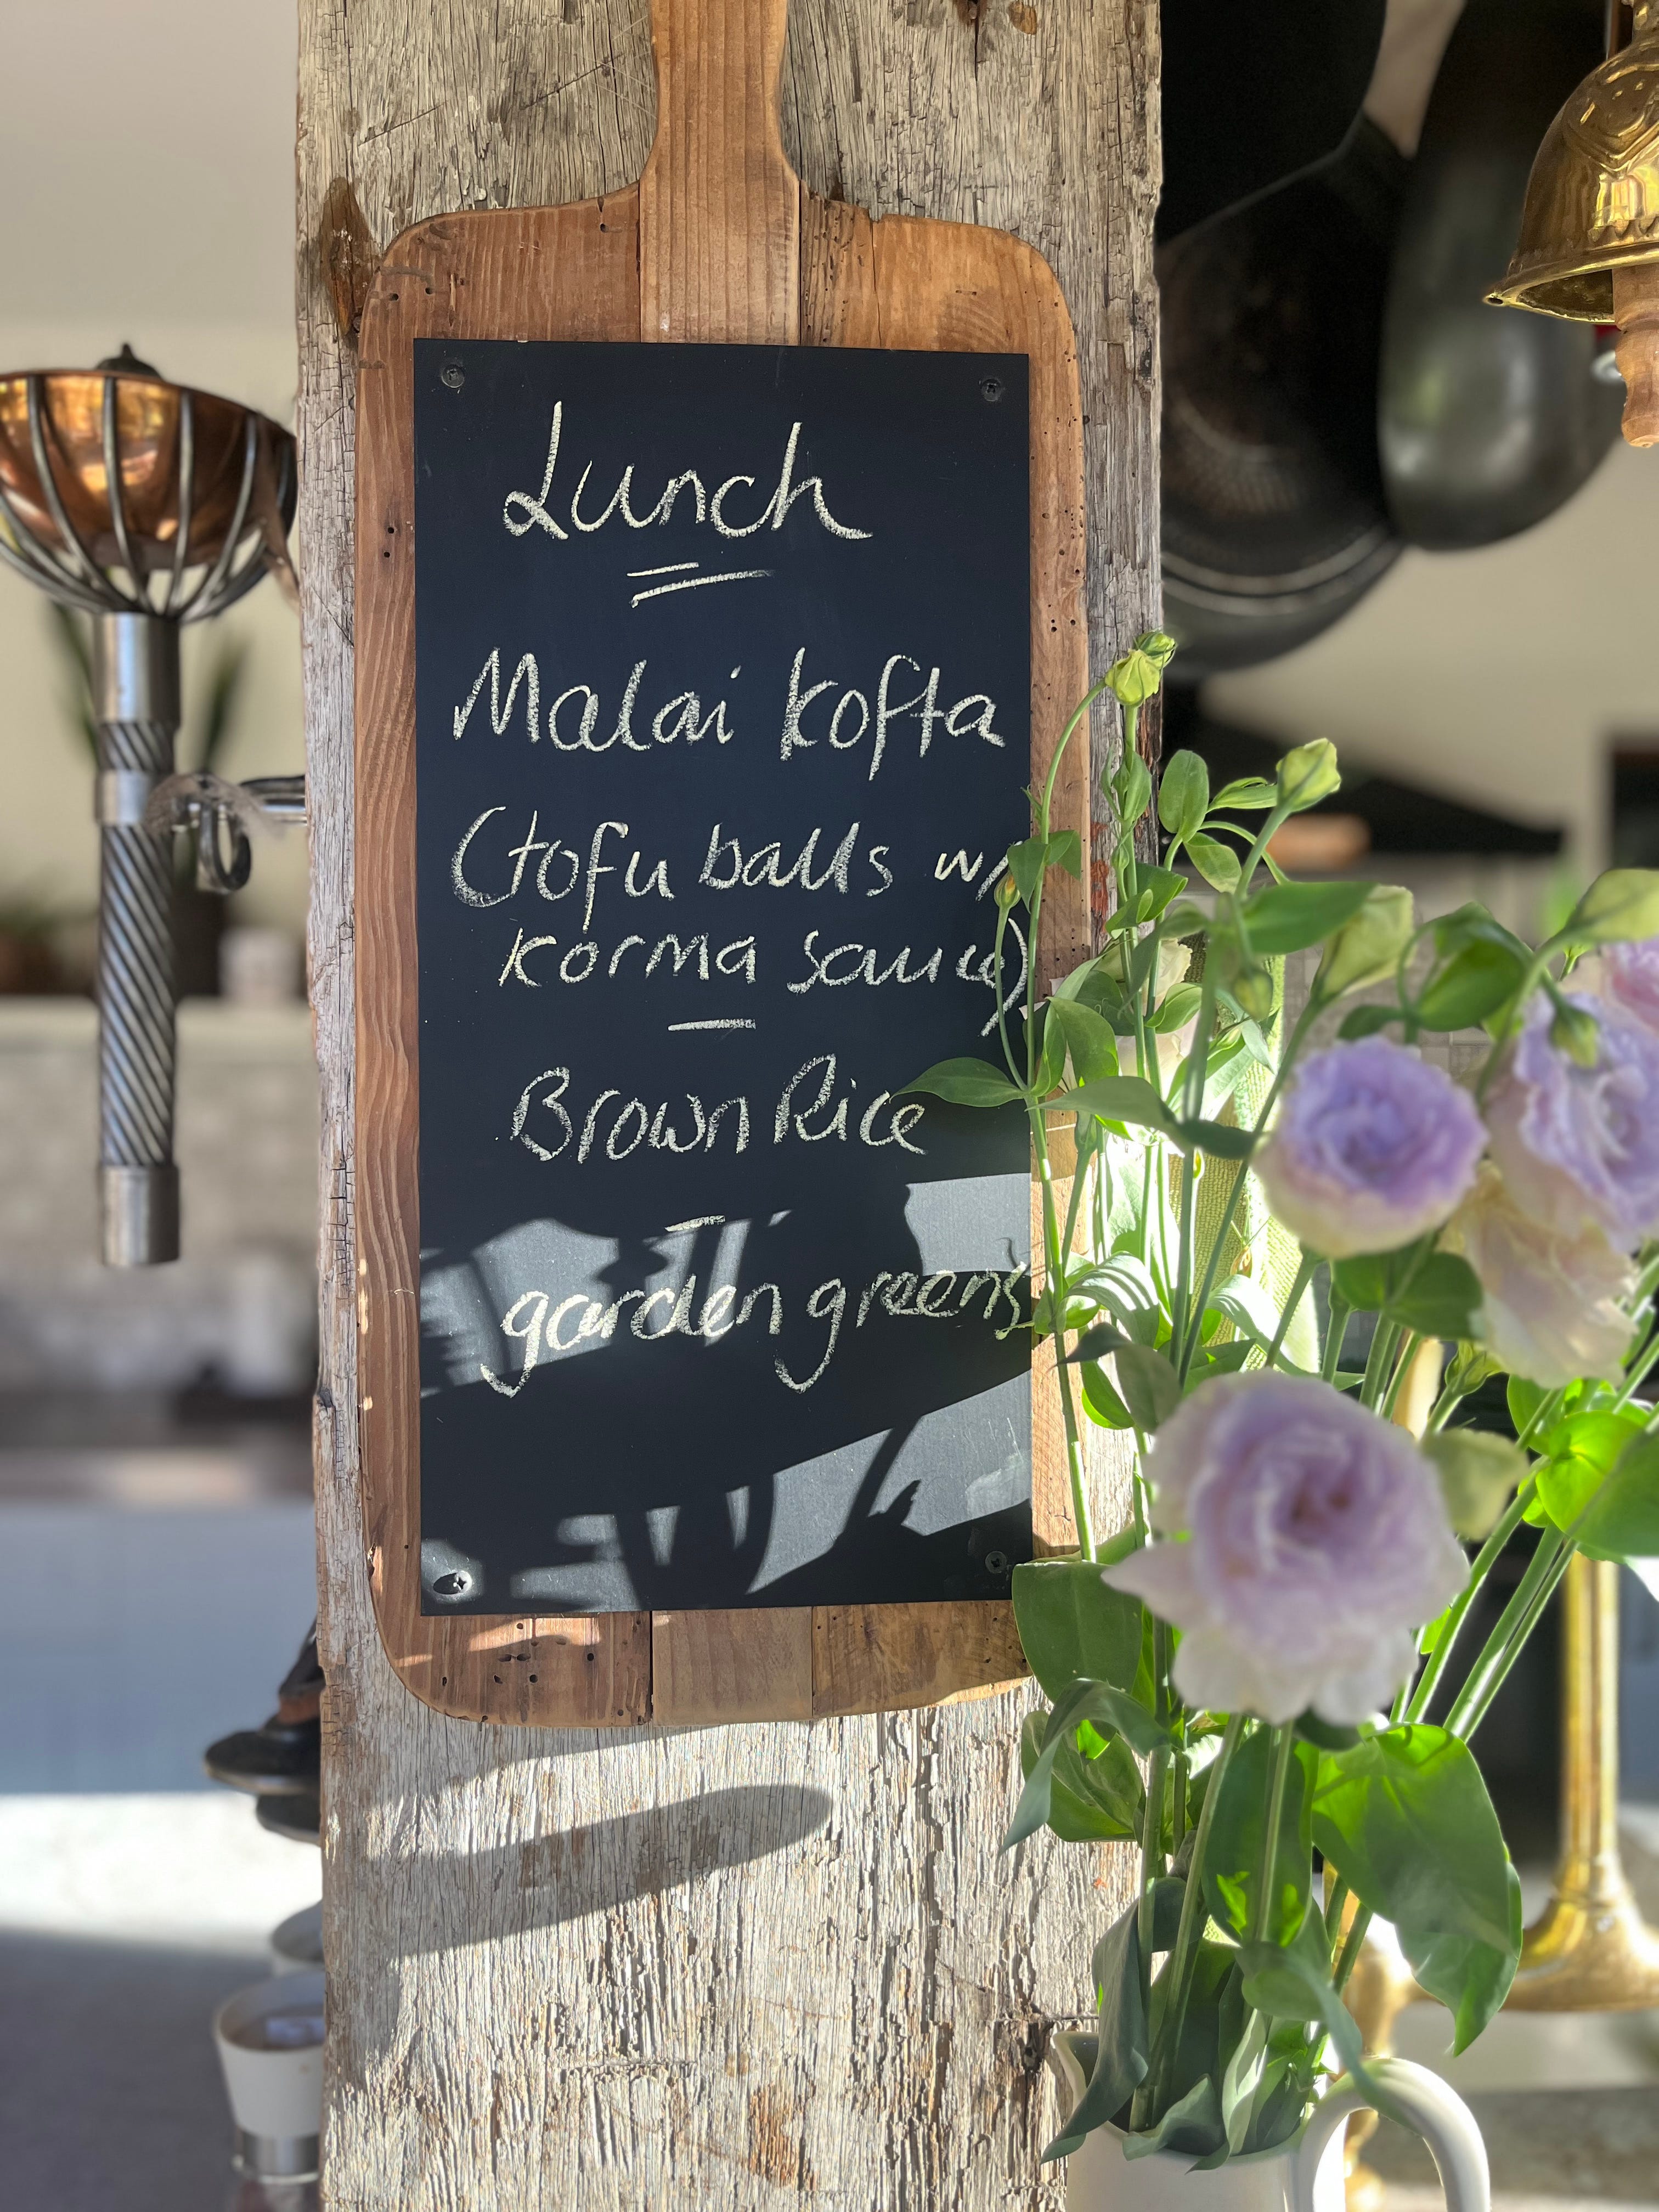 Lunch
Malai Kofta
(tofu balls w/
korma sauce)
Brown Rice
garden greens